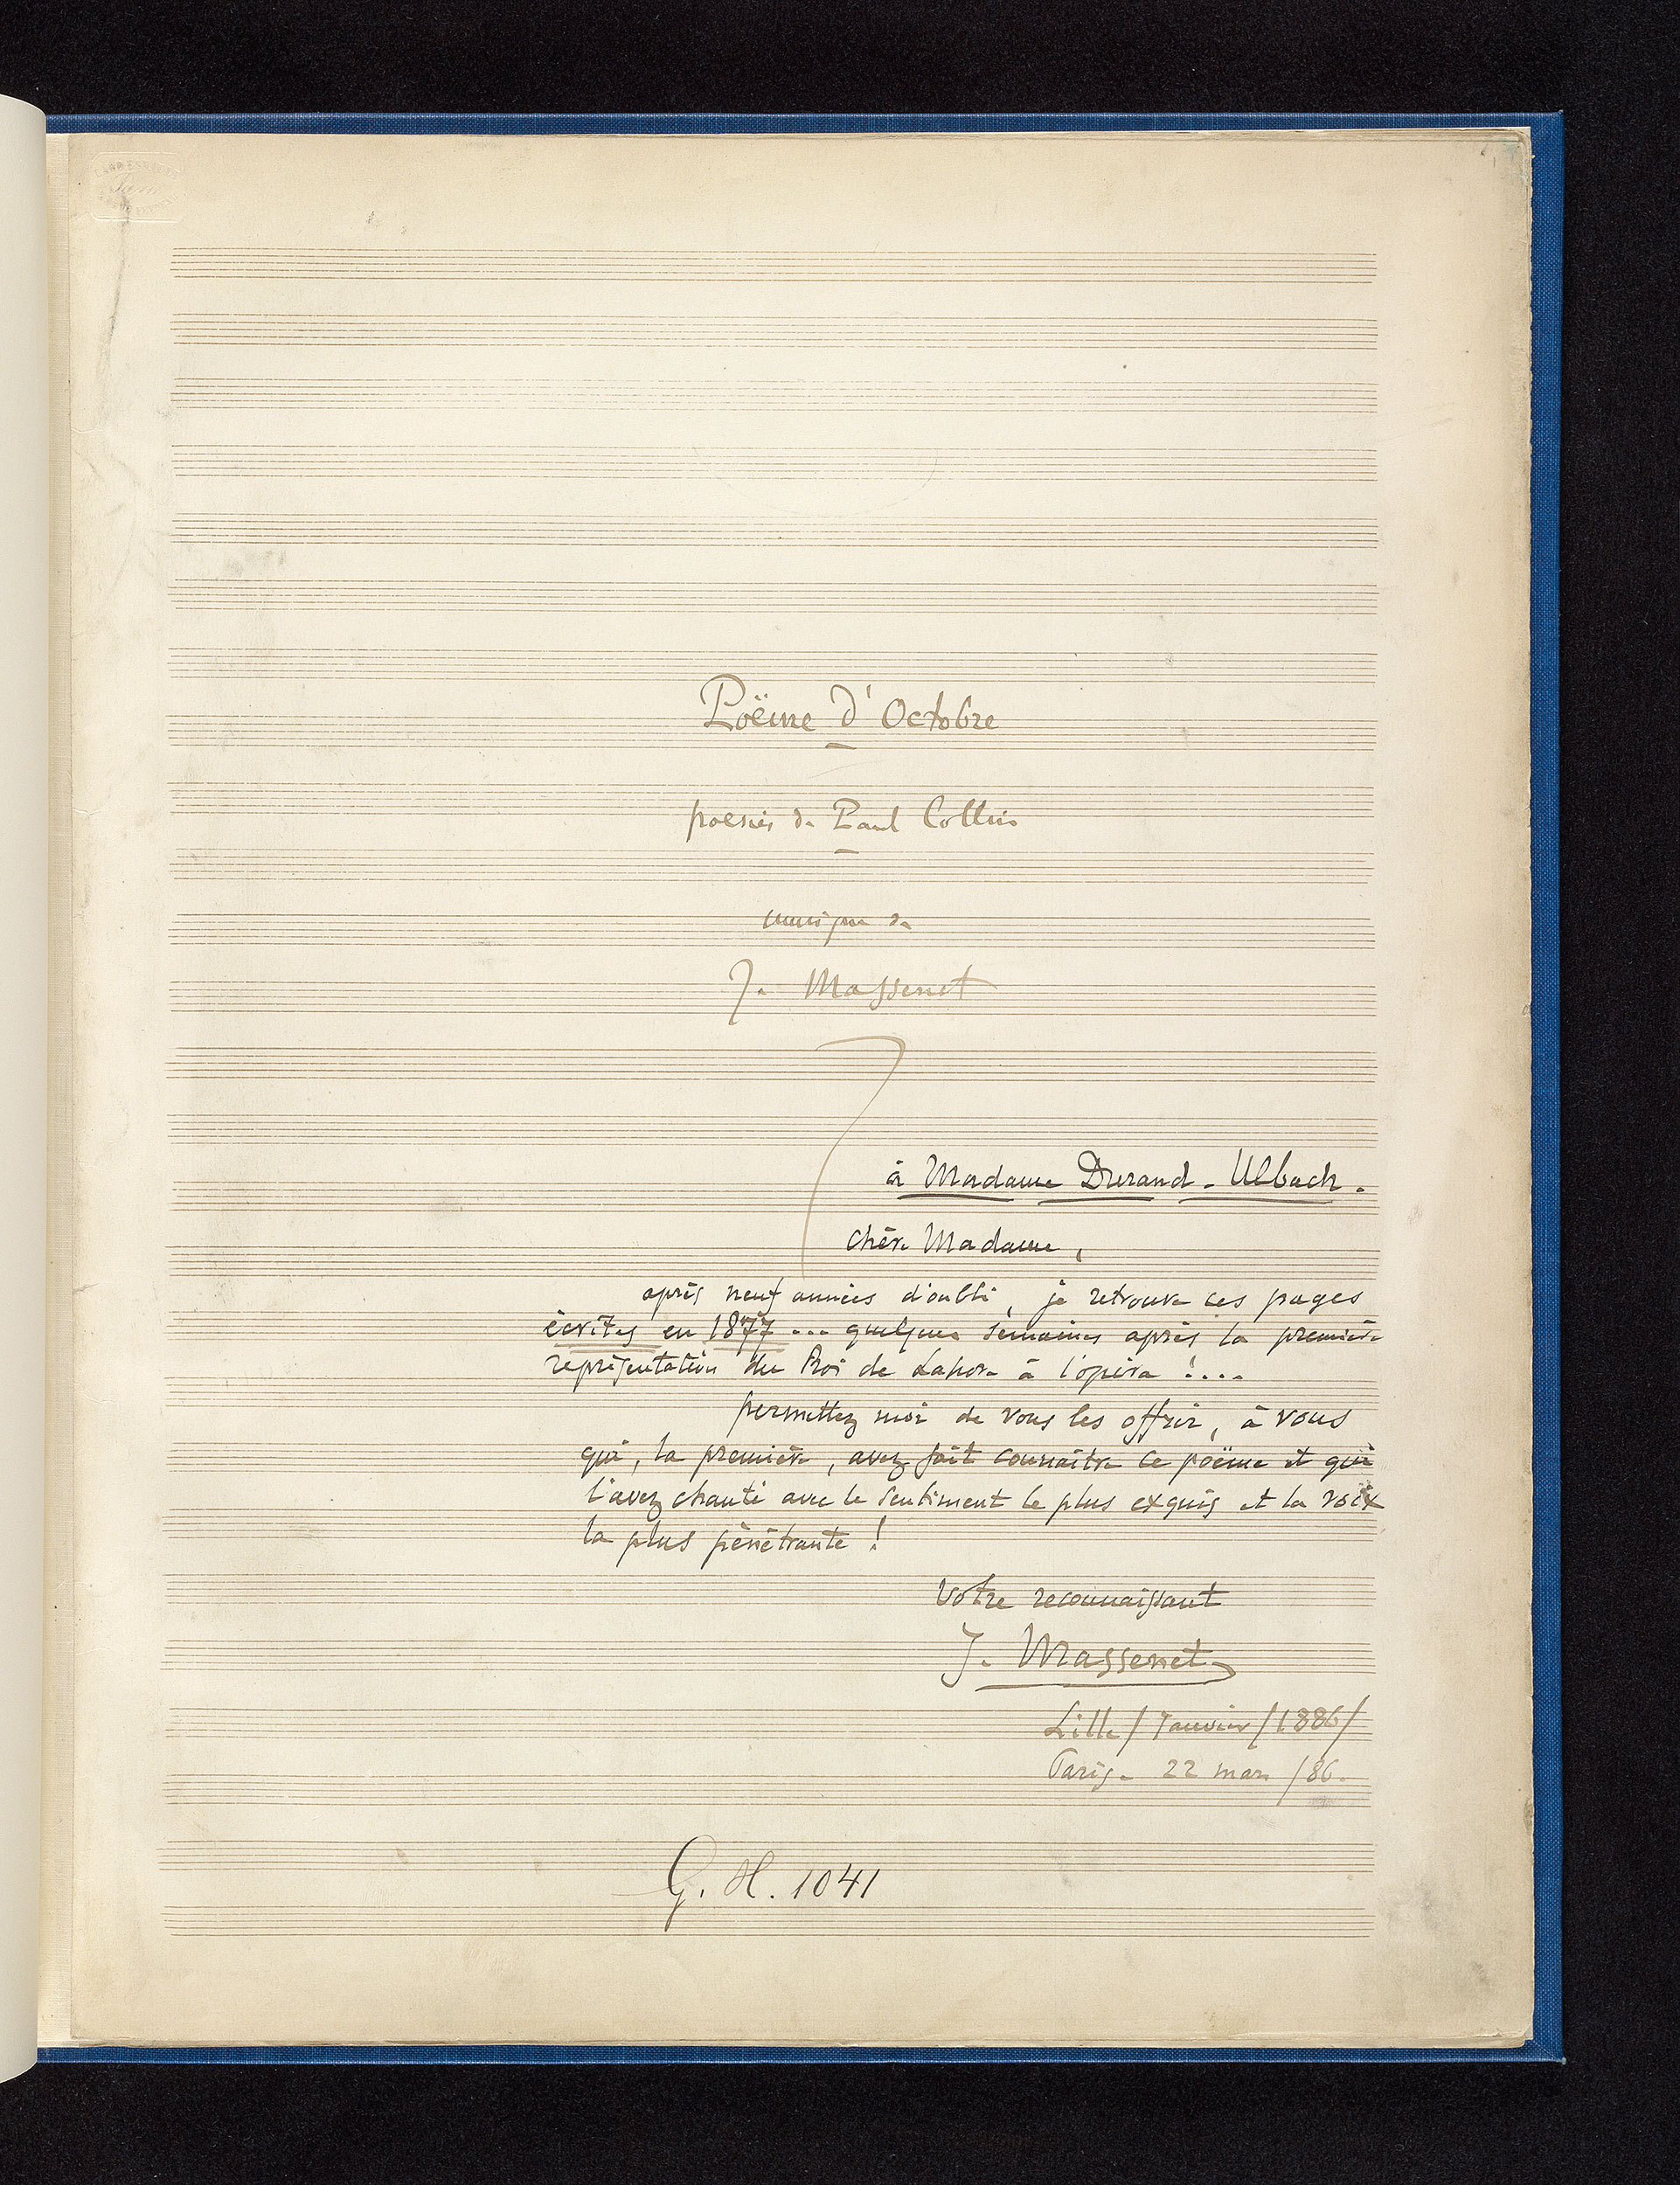 Poëme d'Octobre
poésies de Paul Collin
musique de
J. Massenet
à Madame Durand-Ulbach.
Chère Madame,
après neuf années d'oubli, je retrouve ces pages
écrites en 1877 ... quelques semaines après la première
représentation du Roi de Lahore à l'opéra !....
permettez moi de vous les offrir, à vous
qui, la première, avez fait connaître ce poëme et qui
l'avez chanté avec le sentiment le plus exquis et la voix
la plus pénétrante !
Votre reconnaissant
J. Massenet
Lille / Janvier / 1886 /
Paris - 22 mars / 86.
G. H. 1041